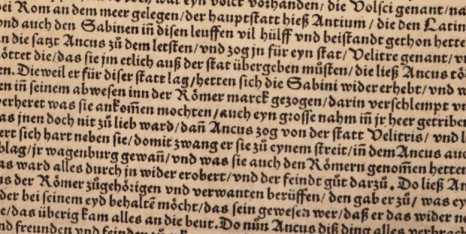 eyn volck vorhanden/ die Volsci genant/
bei Rom an dem meer gelegen/ der hauptstatt hieß Antium/ die den Latin
vnd auch den Sabinen in disen leuffen vil hülff vnd beistandt gethon hette
die satzt Ancus zů dem letsten/ vnd zog in für eyn stat/ Velitre genant/
die/ das sie jm etlich auß der stat übergeben můsten/ die ließ Ancus
Dieweil er für diser statt lag/ hetten sich die Sabini wider erhebt/ vnd
in seinem abwesen inn der Römer marck gezogen/ darin verschlempt
verheret was sie ankom̃en mochten/ auch eyn grosse nahm in jr heer getriben
jnen doch nit zů lieb ward/ dañ Ancus zog von der statt Velitris/ vnd
sich hart neben sie/ domit zwang er sie zů eynem streit/ in dem Ancus
jr wagenburg gewañ/ vnd was sie auch den Römern genom̃en hetten
ward alles durch in wider erobert/ vnd der feindt gůt darzů. Do ließ
der Römer zůgehörigen vnd verwanten berüffen/ den gab er zů/ was
der bei seinem eyd behaltē möcht/ das sein gewesen wer/ daß er das wider
das überig kam alles an die beut. Do nůn Ancus diß ding alles
freunden vnd